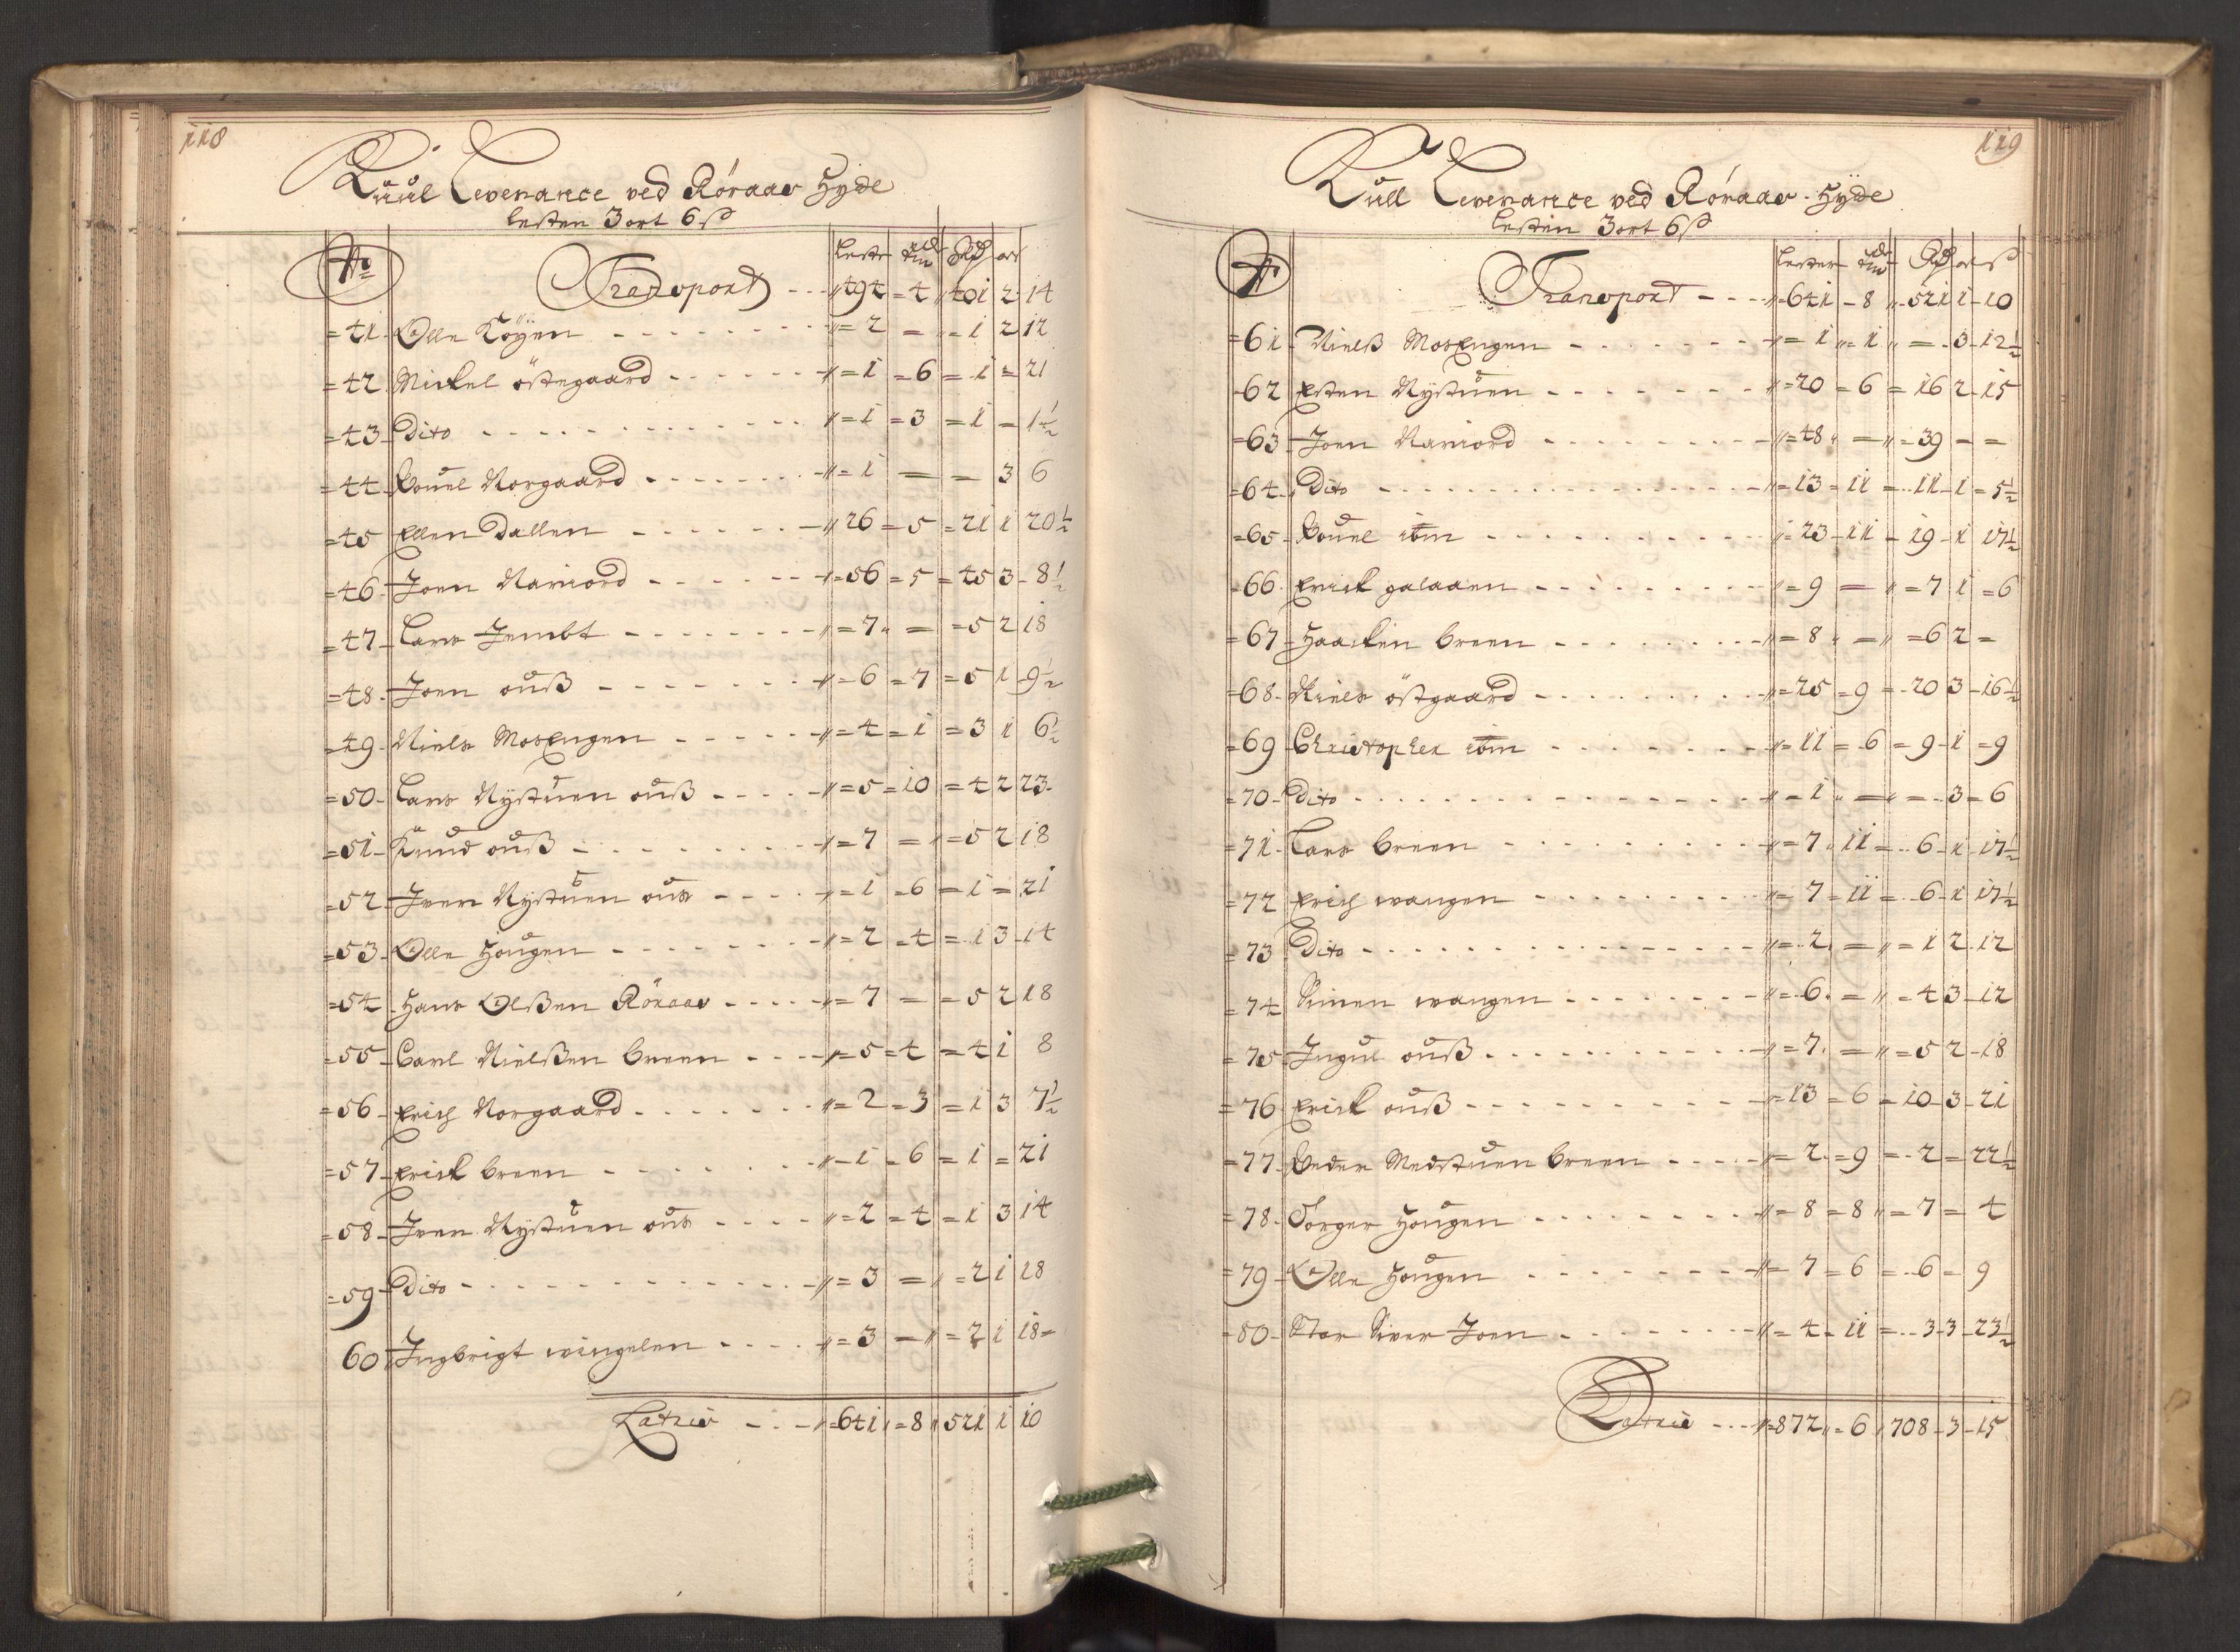 118
Kuul Leverance ved Røraas Hyde
lesten 3 ort 6 ß
No Transport - - - 494 = 4 401 2 14
=41 Olle Köÿen - - - = 2 = = 1 2 12
=42 Mickel östegaard - - - = 1 = 6 = 1 = 21
=43 Dito - - - = 1 = 3 = 1 = 1½
=44 Pouel Norgaard - - - = 1 = = 3 6
=45 Ellen Dallen - - - 26 = 5 = 21 1 20½
=46 Joen Narjord - - - = 56 = 5 = 45 3 - 8½
=47 Lars Jembt - - - = 7 = = 5 2 18
=48 Joen ouß - - - = 6 = 7 = 5 1 9½
=49 Niels MosEngen - - - = 4 = 1 = 3 1 6½
=50 Lars Nÿstuen ouß - - - = 5 = 10 = 4 2 23
=51 Knud ouß - - - = 7 = = 5 2 18
=52 Iver Nÿstuen ous - - - = 1 = 6 = 1 = 21
=53 Olle Hougen - - - = 2 = 4 = 1 3 14
=54 Hans Olßen Röraas - - - = 7 = = 5 2 18
=55 Carl Nielßen Breen - - - = 5 = 4 = 4 1 8
=56 Erich Norgaard - - - = 2 = 3 = 1 3 7½
=57 Erick Breen - - - = 1 = 6 = 1 = 21
=58 Iver Nÿstuen ous - - - = 2 = 4 = 1 3 14
=59 Dito - - - = 3 = = 2 1 18
60 Ingbrigt vingelen - - - = 3 = = 2 1 18
Latris - - - = 641 = 8 521 1 10
119
Kull Leverance ved Røraas Hÿde
lesten 3 ort 6 ß
No Transport - - - 641 - 8 521 1 - 10
=61 Nielß MosEngen - - - = 1 = 1 = 3 - 12½
=62 Esten Nÿstuen - - - = 20 = 6 = 16 2 - 15
=63 Joen Narjord - - - = 48 = = 39 - =
=64 Dito - - - = 13 = 11 = 11 - 1 = 5½
=65 Pouel ibm - - - = 23 - 11 - 19 - 1 17½
=66 Erick galaaen - - - = 9 = = 7 1 = 6
=67 Haacken Breen - - - = 8 = = 6 2 =
=68 Niels östgaard - - - = 25 = 9 = 20 3 - 16½
=69 Christopher ibm - - - = 11 = 6 = 9 - 1 = 9
=70 Dito - - - = 1 = = 3 = 6
=71 Lars Breen - - - = 7 11 = 6 - 1 - 17½
=72 Erich wangen - - - = 7 = 11 = 6 - 1 17½
=73 Dito - - - = 2 = = 1 2 - 12
=74 Simen wangen - - - = 6 = = 4 3 - 12
=75 Ingul ouß - - - = 7 = = 5 2 - 18
=76 Erick ouß - - - = 13 = 6 = 10 - 3 - 21
=77 Peder Medstuen Breen - - - = 2 = 9 = 2 = 22½
=78 Torger Hougen - - - = 8 = 8 = 7 = 4
=79 Olle Hougen - - - = 7 = 6 = 6 = 9
=80 Stor Siver Joen - - - = 4 - 11 = 3 - 3 - 23½
Latris - - - = 872 = 6 708 - 3 - 15